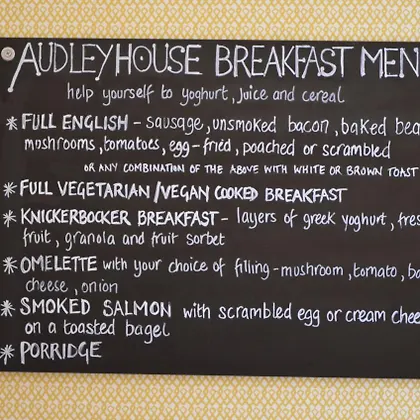 AUDLEY HOUSE BREAKFAST MEN
help yourself to yoghurt, juice and cereal
* FULL ENGLISH - sausage, unsmoked bacon, baked bea
mushrooms, tomatoes, egg - fried, poached or scrambled
OR ANY COMBINATION OF THE ABOVE WITH WHITE OR BROWN TOAST
* FULL VEGETARIAN / VEGAN COOKED BREAKFAST
* KNICKERBOCKER BREAKFAST - layers of greek yoghurt, fres
fruit, granola and fruit sorbet
* OMELETTE with your choice of filling - mushroom, tomato, ba
cheese, onion
* SMOKED SALMON with scrambled egg or cream chee
on a toasted bagel
* PORRIDGE